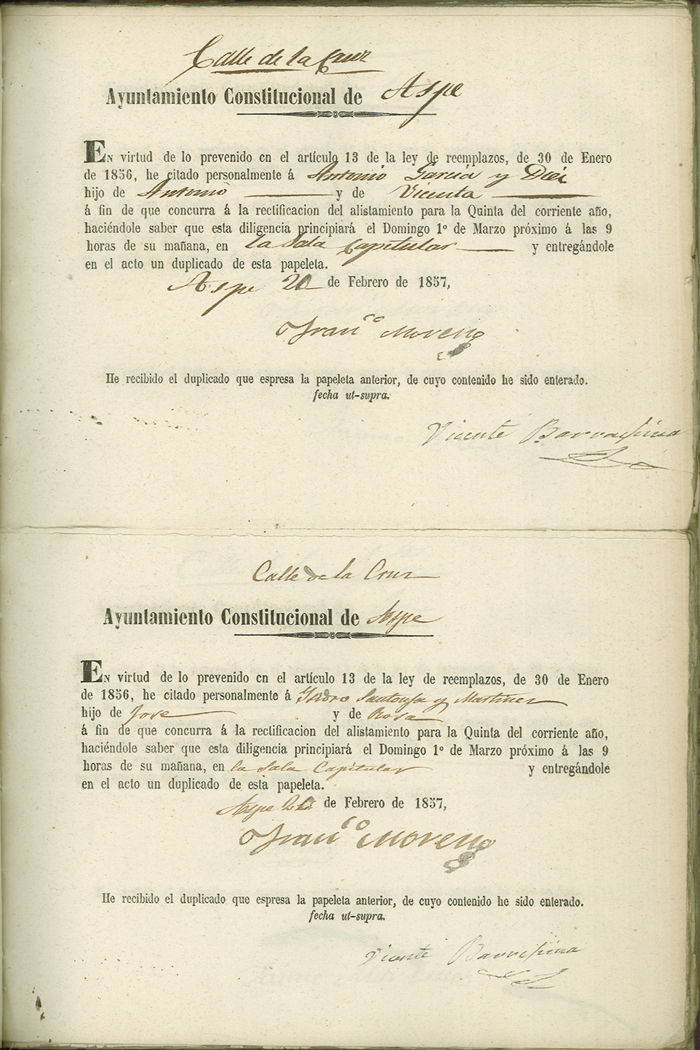 Calle de la Cruz
Ayuntamiento Constitucional de Aspe
EN virtud de lo prevenido en el artículo 13 de la ley de reemplazos, de 30 de Enero
de 1856, he citado personalmente á Antonio Garcia y Diez
hijo de Antonio y de Vicenta
á fin de que concurra á la rectificacion del alistamiento para la Quinta del corriente año,
haciéndole saber que esta diligencia principiará el Domingo 1º de Marzo próximo á las 9
horas de su mañana, en la Sala Capitular y entregándole
en el acto un duplicado de esta papeleta.
Aspe de Febrero de 1857,
Franco Moreno
He recibido el duplicado que espresa la papeleta anterior, de cuyo contenido he sido enterado.
fecha ut-supra.
Vicente Barrachina
Calle de la Cruz
Ayuntamiento Constitucional de Aspe
EN virtud de lo prevenido en el artículo 13 de la ley de reemplazos, de 30 de Enero
de 1856, he citado personalmente á y Martinez
hijo de Jose y de Rosa
á fin de que concurra á la rectificacion del alistamiento para la Quinta del corriente año,
haciéndole saber que esta diligencia principiará el Domingo 1º de Marzo próximo á las 9
horas de su mañana, en la Sala Capitular y entregándole
en el acto un duplicado de esta papeleta.
Aspe de Febrero de 1857,
Franco Moreno
He recibido el duplicado que espresa la papeleta anterior, de cuyo contenido he sido enterado.
fecha ut-supra.
Vicente Barrachina